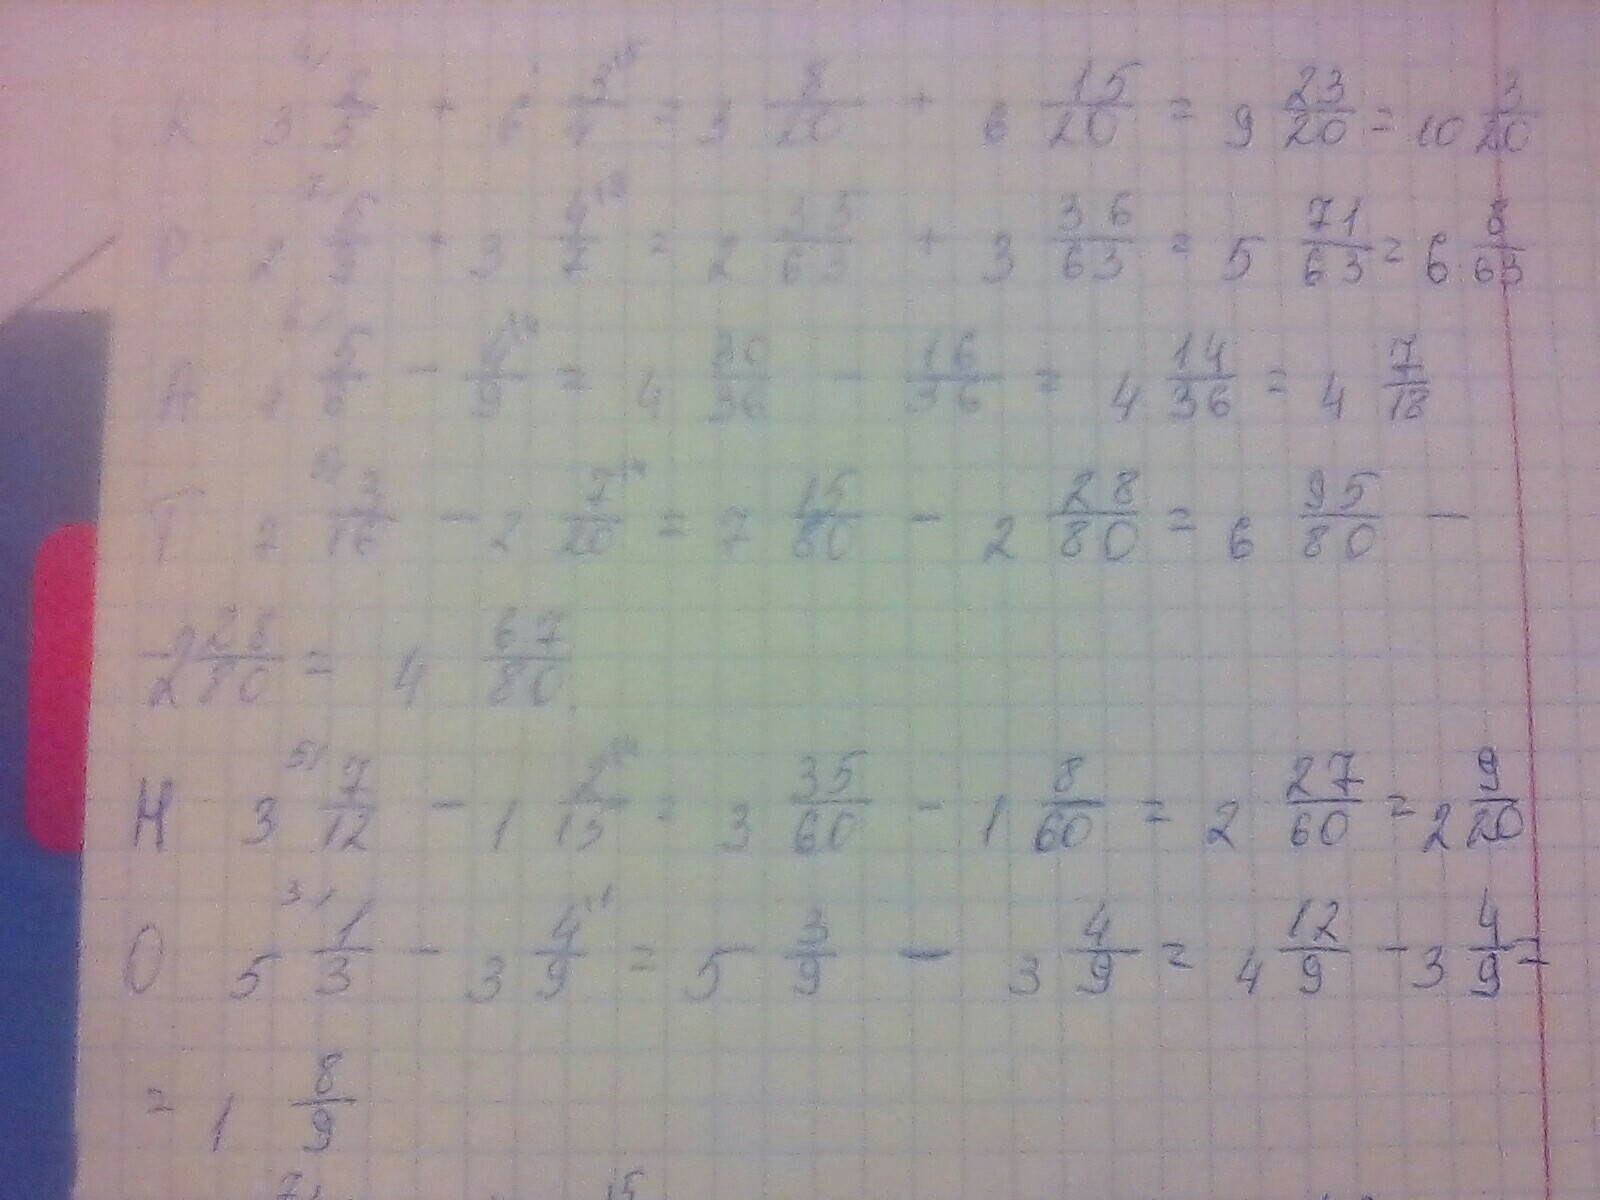 К 3 2/5 + 6 3/4 = 9 8/20 + 6 15/20 = 9 23/20 = 10 3/20
Р 2 5/9 + 3 4/7 = 2 35/63 + 3 36/63 = 5 71/63 = 6 8/63
А 4 5/6 - 4/9 = 4 30/36 - 16/36 = 4 14/36 = 4 7/18
Т 7 3/16 - 2 7/20 = 7 15/80 - 2 28/80 = 6 95/80 -
- 2 28/80 = 4 67/80
Н 3 7/12 - 1 2/15 = 3 35/60 - 1 8/60 = 2 27/60 = 2 9/20
О 5 1/3 - 3 4/9 = 5 3/9 - 3 4/9 = 4 12/9 - 3 4/9 =
= 1 8/9